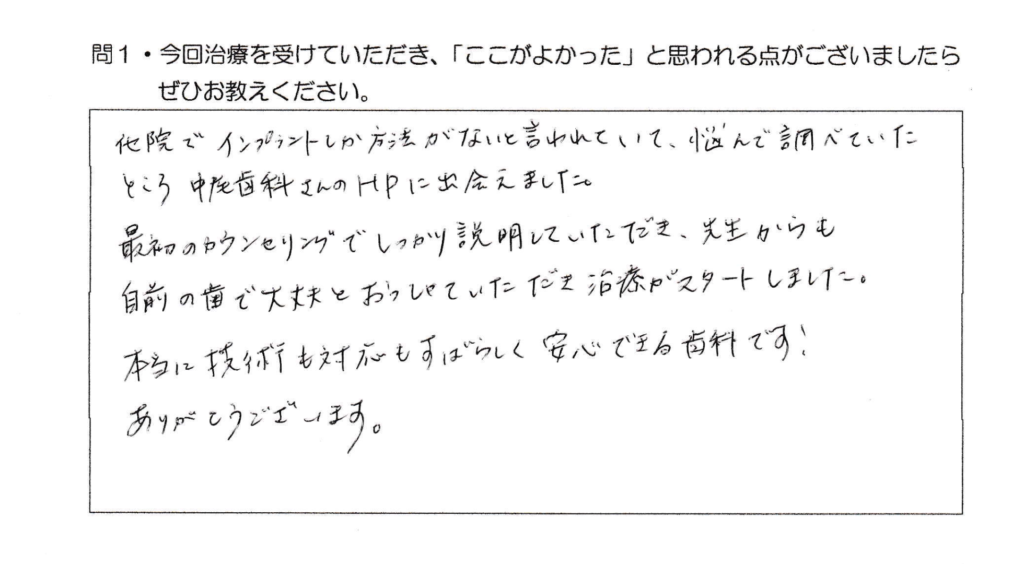 問1・今回治療を受けていただき、「ここがよかった」と思われる点がございましたら
ぜひお教えください。
他院でインプラントしか方法がないと言われていて、悩んで調べていた
ところ中尾歯科さんのHPに出会えました。
最初のカウンセリングでしっかり説明していただき、先生からも
自前の歯で大丈夫とおっしゃていただき治療がスタートしました。
本当に技術も対応もすばらしく安心できる歯科です!
ありがとうございます。